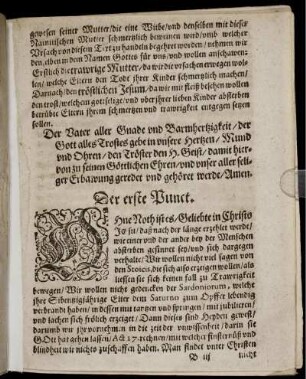 gewesen seiner Mutter/die eine Witbe/vnd denselben mit dieser
Nainitischen Mutter schmertzlich beweinen werd/vmb welcher
Vrsach vns diesen Text zu handeln begehret worden/nehmen wir
den selben in dem Namen Gottes für vns/vnd wollen anschawen:
Erstlich die trawrige Mutter/da wir die vrsachen erwegen wol-
len/welche Eltern den Todt ihrer Kinder schmertzlich machen/
Darnach den tröstlichen Jesum/da wir mit fleiß besehen wollen
den trost/welchen gott setzet/vnd ober ihrer lieben Kinder absterben
betrübte Eltern ihrem schmertzen vnd trawrigkeit entgegen setzen
sollen.
Der Vater aller Gnade vnd Barmhertzigkeit/der
Gott alles Trostes gebe in vnsere Hertzen/Mund
vnd Ohren/den Tröster den H. Geist/damit hier-
von zu seinen Göttlichen Ehren/vnd vnser aller seli-
ger Erbawung geredet vnd gehöret werde/Amen.
Der erste Punct.
Ohne Noth ist es/Geliebte in Christo
Jesu/daß nach der länge erzehlet werde/
wie einer vnd der ander bey der Menschen
absterben gesinnet sey/vnd sich dargegen
verhalte: Wir wollen nicht viel sagen von
den Stoicis, die sich also erzeigen wollen/als
liessen sie sich keinen fall zu Trawrigkeit
bewegen/Wir wollen nicht gedencken der Sardoniorum, welche
ihre Siebentzigjährige Eltern dem Saturno zum Opffer lebendig
verbrandt haben/in dessen mit tantzen vnd springen/mit jubilieren/
vnd lachen sich frölich erzeiget/Dann diese sind Heyden gewest/
darumb wir ihr vornehmen in die zeit der vnwissenheit/darin sie
GOtt hat gehen lassen/Act 17. rechnen/mit welcher finsternüß vnd
blindheit wir nichts zuschaffen haben. Man findet vnter Christen
B iij
nicht